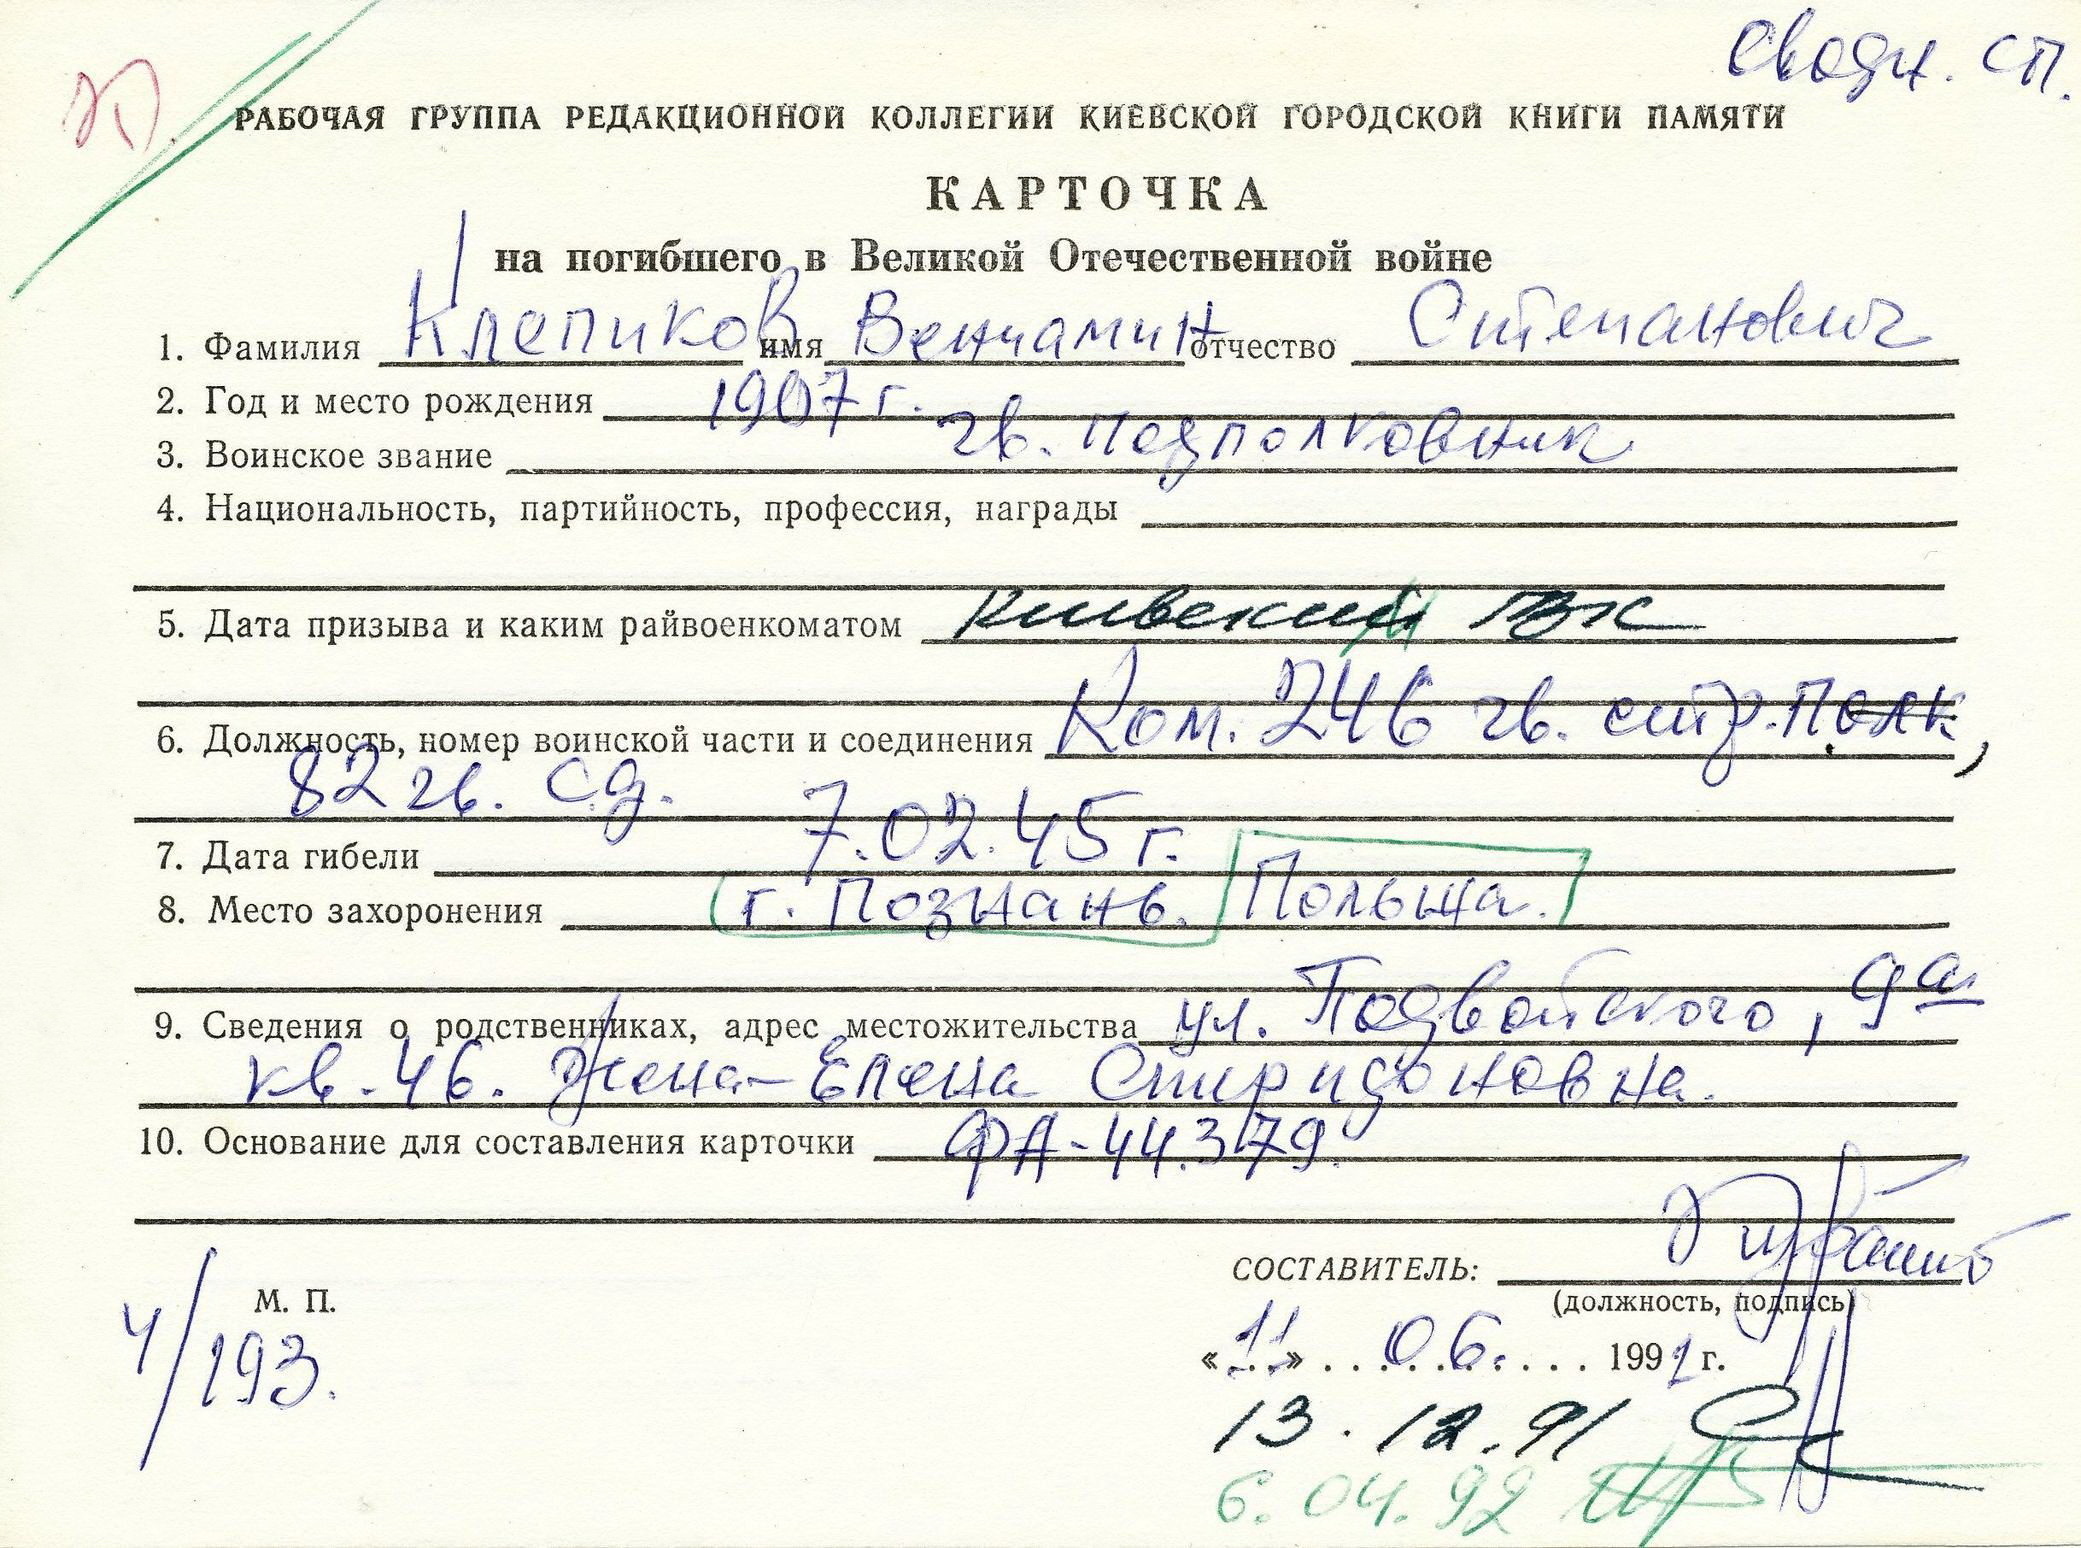 Сводн. сп.
РАБОЧАЯ ГРУППА РЕДАКЦИОННОЙ КОЛЛЕГИИ КИЕВСКОЙ ГОРОДСКОЙ КНИГИ ПАМЯТИ
КАРТОЧКА
на погибшего в Великой Отечественной войне
1. Фамилия Клепиков имя Вениамин отчество Степанович
2. Год и место рождения 1907 г.
3. Воинское звание гв. подполковник
4. Национальность, партийность, профессия, награды
5. Дата призыва и каким райвоенкоматом Киевский ГВК
6. Должность, номер воинской части и соединения Ком. 246 гв. стр. полк,
82 гв. с.д.
7. Дата гибели 7.02.45 г.
8. Место захоронения г. Познань. Польша.
9. Сведения о родственниках, адрес местожительства ул. Подвойского, 9а
кв. 46. Жена - Елена Спиридоновна.
10. Основание для составления карточки ФА-44.379.
СОСТАВИТЕЛЬ:
(должность, подпись)
М. П.
4/193.
«11» . . . 06. . . . . 1991 г.
13.12.91
6.04.92